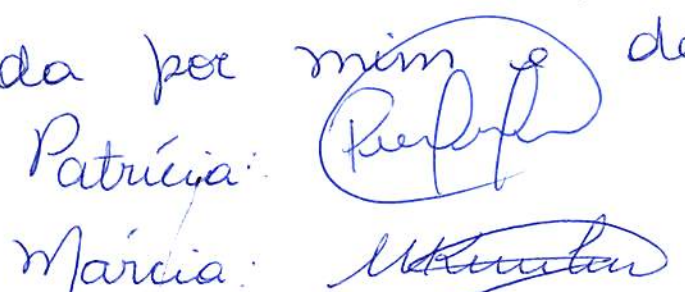 da por mim e de
Patrícia:
Márcia: